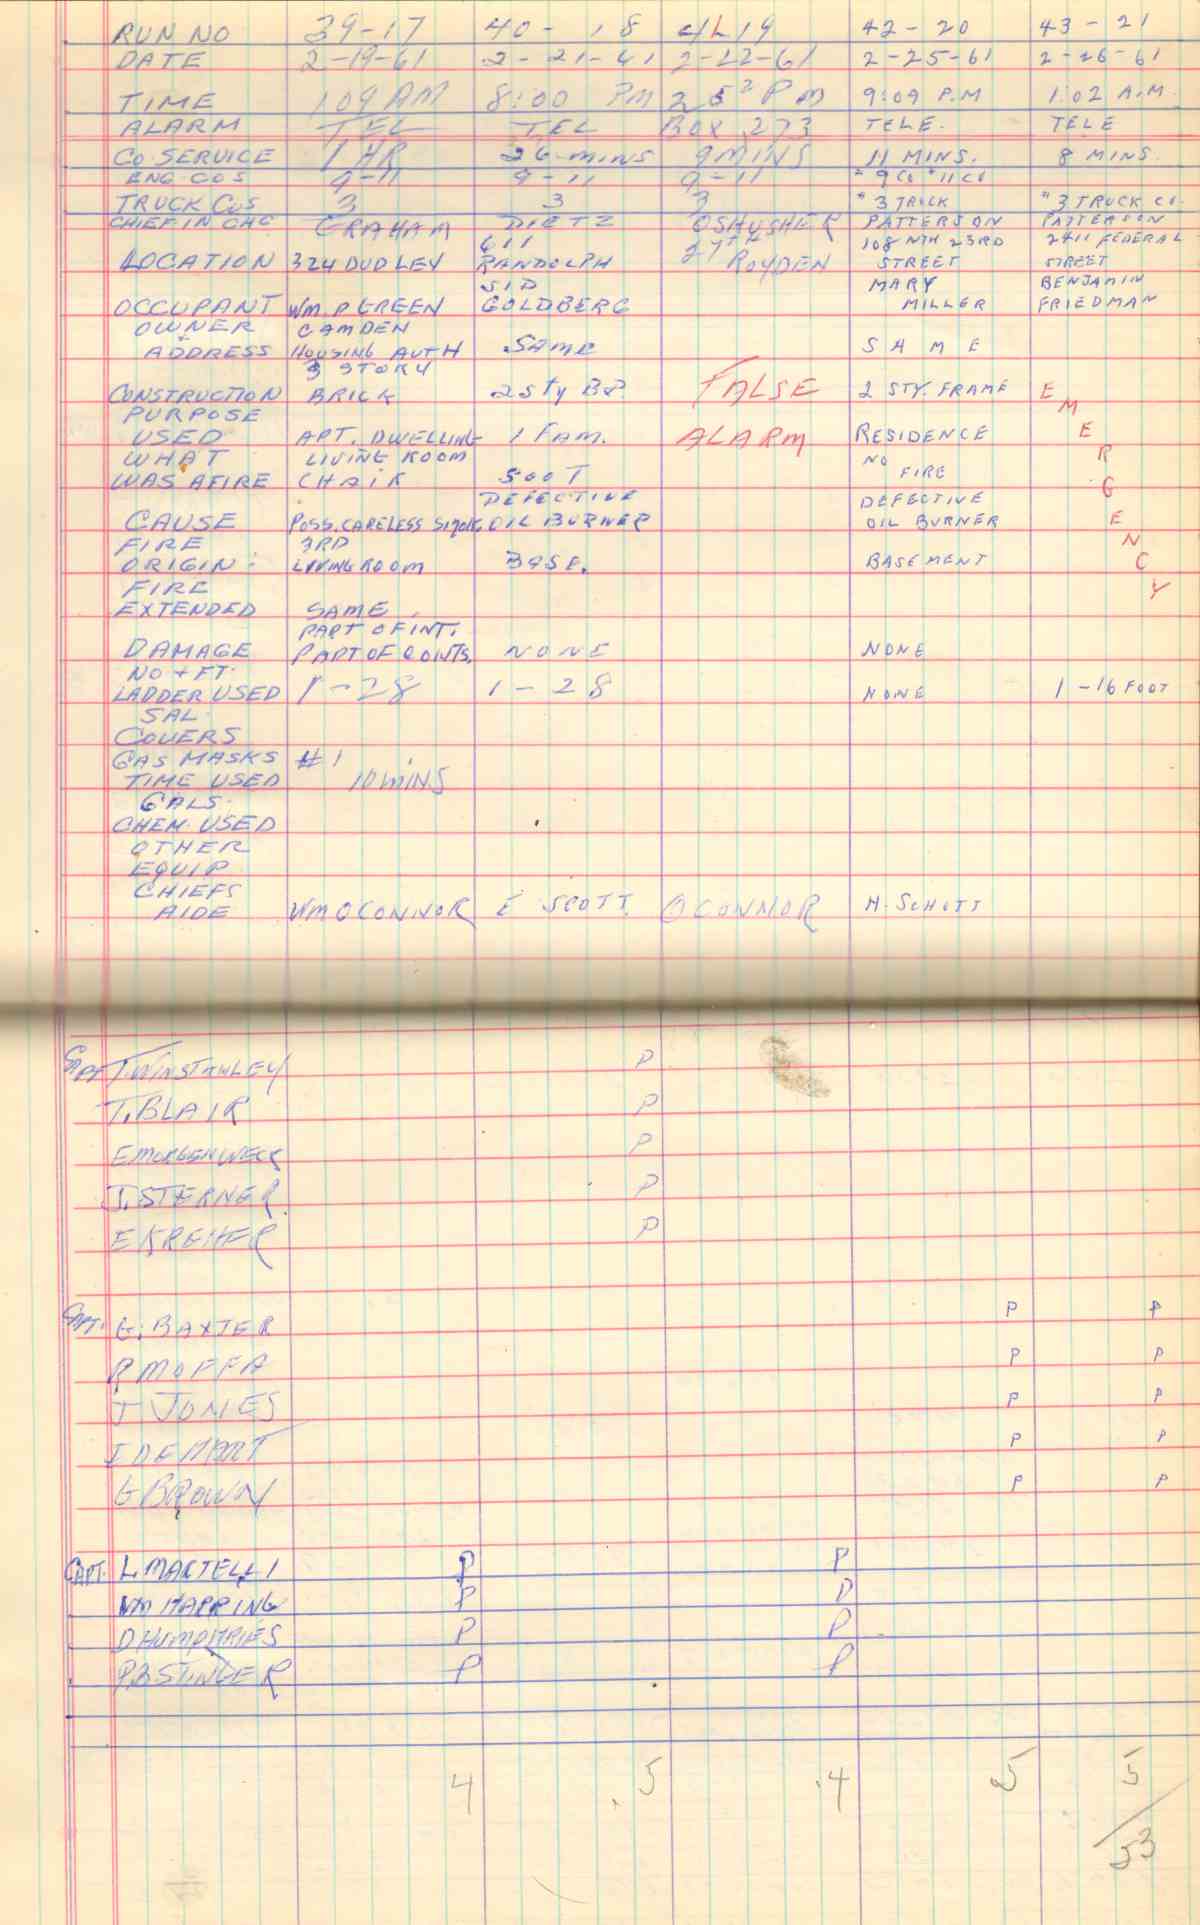 RUN NO 39-17 40-18 41 19 42-20 43-21
DATE 2-19-61 2-21-61 2-22-61 2-25-61 2-26-61
TIME 109 AM 8:00 PM 2 5 2 PM 9:09 P.M 1:02 A.M.
ALARM TEL TEL BOX 273 TELE. TELE
CO. SERVICE 1 HR 26 MINS 9 MINS 11 MINS. 8 MINS.
ENG. COS 9-11 9-11 9-11 "9 CO "11 CO
TRUCK COS 3 3 3 "3 TRUCK "3 TRUCK CO.
CHIEF IN CHG GRAHAM DIETZ PATTERSON PATTERSON
611 27TH 108 NTH 23RD 2411 FEDERAL
LOCATION 324 DUDLEY RANDOLPH ROYDEN STREET STREET
SID MARY BENJAMIN
OCCUPANT WM. P GREEN GOLDBERG MILLER FRIEDMAN
OWNER CAMDEN
ADDRESS HOUSING AUTH SAME SAME
3 STORY
CONSTRUCTION BRICK 2 Sty BR. FALSE 2 STY. FRAME EMERGENCY
PURPOSE
USED APT. DWELLING 1 FAM. ALARM RESIDENCE
WHAT LIVING ROOM NO
WAS AFIRE CHAIR SOOT FIRE
DEFECTIVE DEFECTIVE
CAUSE POSS. CARELESS SMOK. OIL BURNER OIL BURNER
FIRE 3RD
ORIGIN: LIVING ROOM BASE. BASEMENT
FIRE
EXTENDED SAME
PART OF INT.
DAMAGE PART OF CONTS. NONE NONE
NO + FT.
LADDER USED 1-28 1-28 NONE 1-16 FOOT
SAL.
COVERS
GAS MASKS #1
TIME USED 10 MINS
GALS.
CHEM. USED
OTHER
EQUIP
CHIEFS
AIDE WM OCONNOR E SCOTT. OCONNOR H. SCHOTT
CAPT T. WINSTANLEY P
T. BLAIR P
E MORGENWECK P
J. STERNER P
E KREHER P
CAPT. G. BAXTER P P
R MOFFA P P
J JONES P P
J DEHART P P
G BROWN P P
CAPT. L. MARTELLI P P
WM HARRING P P
D HUMPHRIES P P
P. B. STINGER P P
4 5 4 5 5